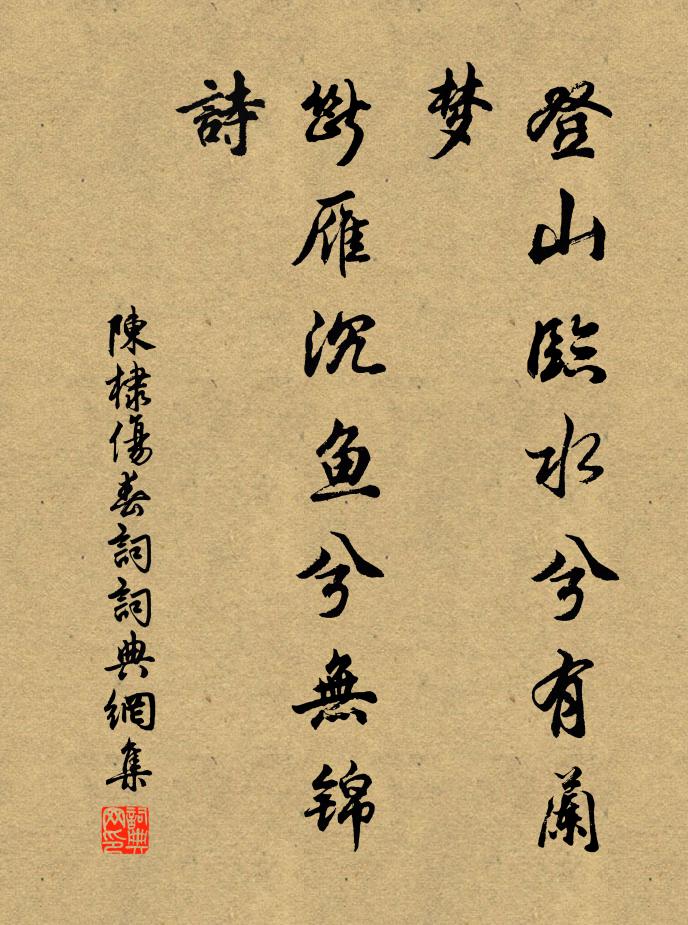 登山臨水兮有蘭
梦
斷雁沉鱼兮無锦
詩
陳棣傷春詞詞典網集
詞典
网印